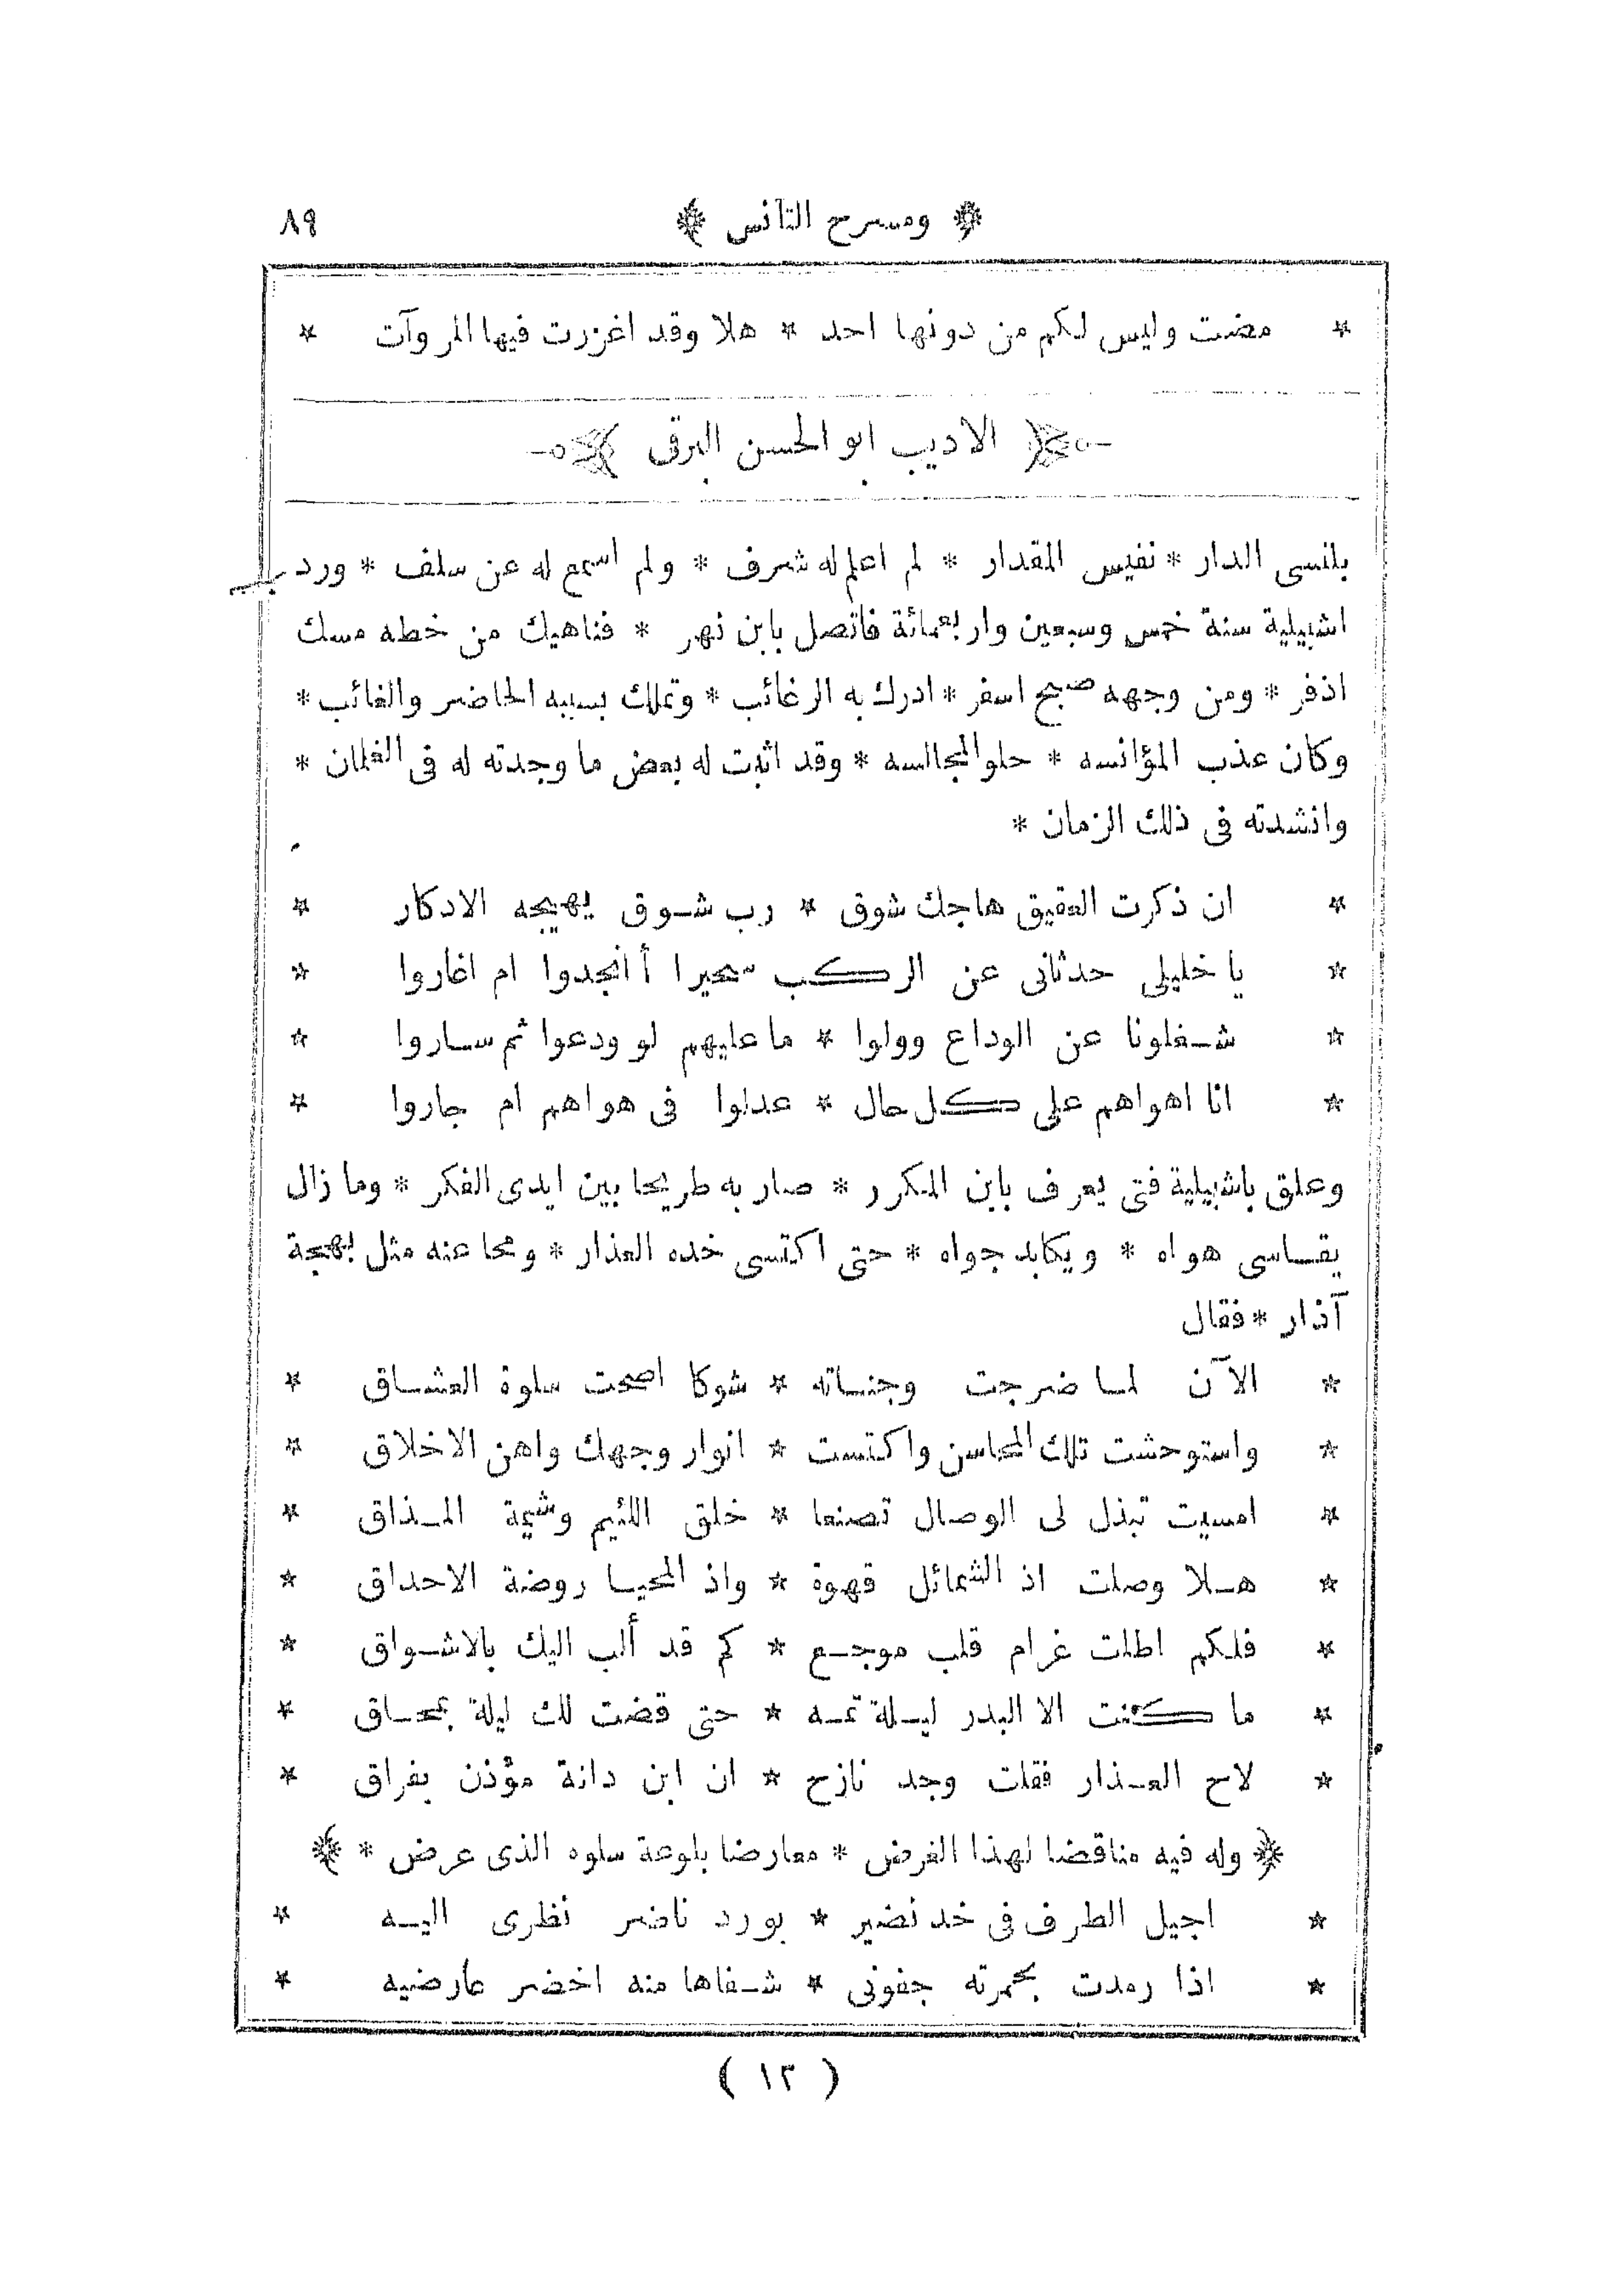 ﴿ ومسرح التآنس ﴾ ٨٩
* مضت وليس لكم من دونها احد * هلا وقد اغزرت فيها المروآت *
﴿ الاديب ابو الحسن البرقى ﴾
بلنسى الدار * نفيس المقدار * لم اعلم له شرف * ولم اسمع له عن سلف * ورد
اشبيلية سنة خمس وسبعين واربعمائة فاتصل بابن زهر * فناهيك من خطه مسك
اذفر * ومن وجهه صبح اسفر * ادرك به الرغائب * وتملك بسببه الحاضر والغائب *
وكان عذب المؤانسه * حلو المجالسه * وقد اثبت له بعض ما وجدته له فى الغلمان *
وانشدته فى ذلك الزمان *
* ان ذكرت العقيق هاجك شوق * رب شوق يهيجه الادكار *
* يا خليلى حدثانى عن الركب سحيرا أأنجدوا ام اغاروا *
* شغلونا عن الوداع وولوا * ما عليهم لو ودعوا ثم ساروا *
* انا اهواهم على كل حال * عدلوا فى هواهم ام جاروا *
وعلق باشبيلية فتى يعرف بابن المكرر * صار به طريحا بين ايدى الفكر * وما زال
يقاسى هواه * ويكابد جواه * حتى اكتسى خده العذار * ومحا عنه مثل بهجة
آذار * فقال
* الآن لما ضرجت وجناته * شوكا اضحت سلوة العشاق *
* واستوحشت تلك المحاسن واكتست * انوار وجهك واهن الاخلاق *
* امسيت تبذل لى الوصال تصنعا * خلق اللئيم وشيمة المذاق *
* هلا وصلت اذ الشمائل قهوة * واذ المحيا روضة الاحداق *
* فلكم اطلت غرام قلب موجع * كم قد ألب اليك بالاشواق *
* ما كنت الا البدر ليلة تمه * حتى قضت لك ليلة بمحاق *
* لاح العذار فقلت وجد نازح * ان ابن داية مؤذن بفراق *
﴿ وله فيه مناقضا لهذا الغرض * معارضا بلوعة سلوه الذى عرض * ﴾
* اجيل الطرف فى خد نضير * بورد ناضر نظرى اليه *
* اذا رمدت بحمرته جفونى * شفاها منه اخضر عارضيه *
( ١٢ )